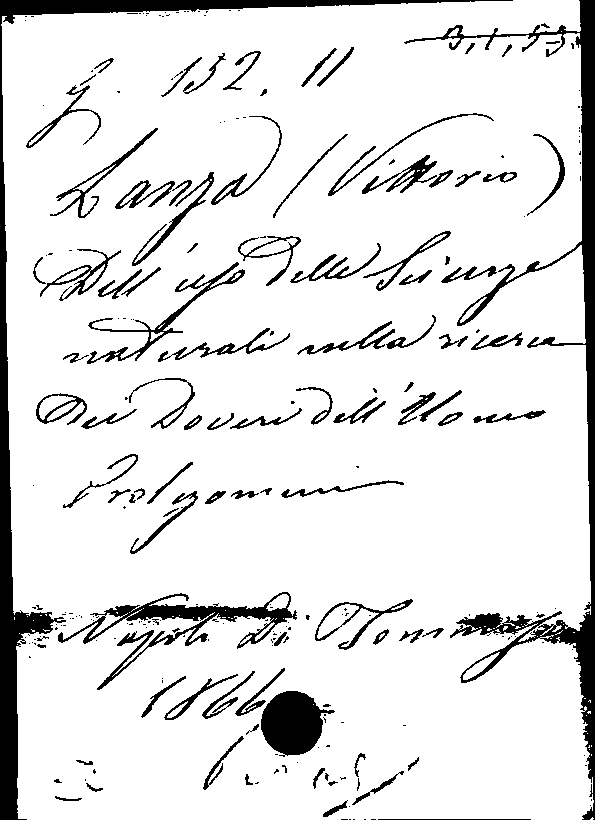 3,1,53.
G. 132. 11
Lanza (Vittorio)
Dell'uso delle Scienze
naturali nella ricerca
dei Doveri dell'Uomo
Prolegomeni
Napoli Di Tommaso
1866